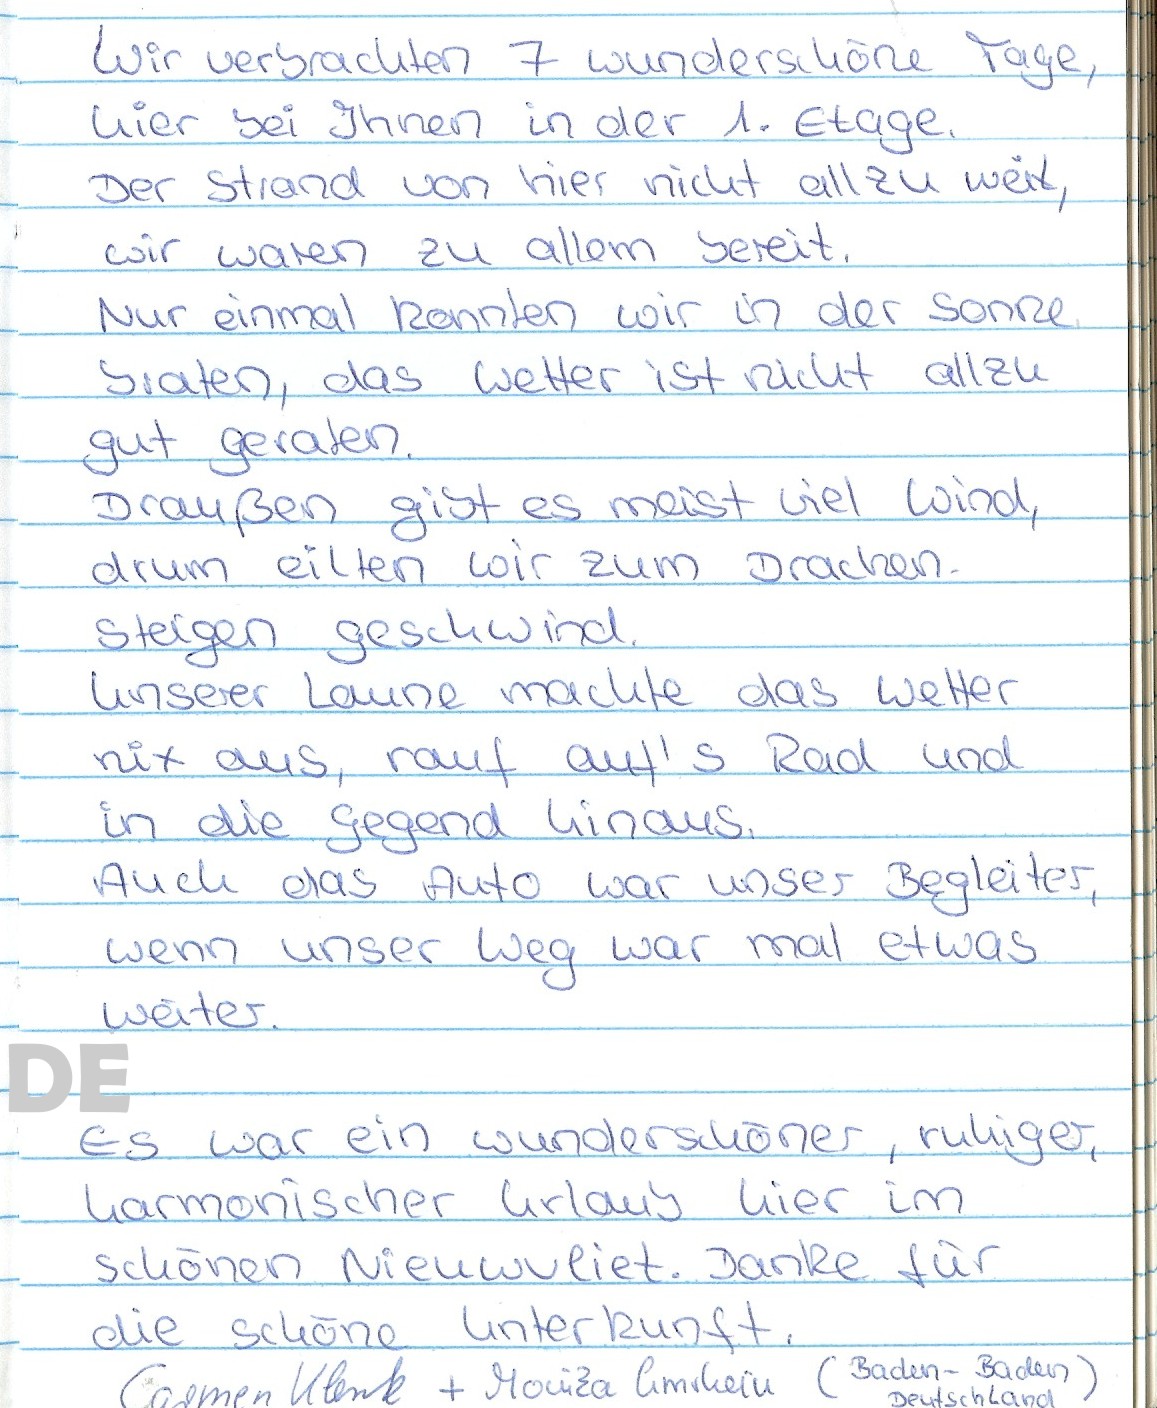 Wir verbrachten 7 wunderschöne Tage,
hier bei Ihnen in der 1. Etage.
Der Strand von hier nicht allzu weit,
wir waren zu allem bereit.
Nur einmal konnten wir in der Sonne
braten, das Wetter ist nicht allzu
gut geraten.
Draußen gibt es meist viel Wind,
drum eilten wir zum Drachen-
steigen geschwind.
Unserer Laune machte das Wetter
nix aus, rauf auf's Rad und
in die Gegend hinaus.
Auch das Auto war unser Begleiter,
wenn unser Weg war mal etwas
weiter.
DE
Es war ein wunderschöner, ruhiger,
harmonischer Urlaub hier im
schönen Nieuwvliet. Danke für
die schöne Unterkunft.
Carmen Klenk + Monika (Baden-Baden)
Deutschland